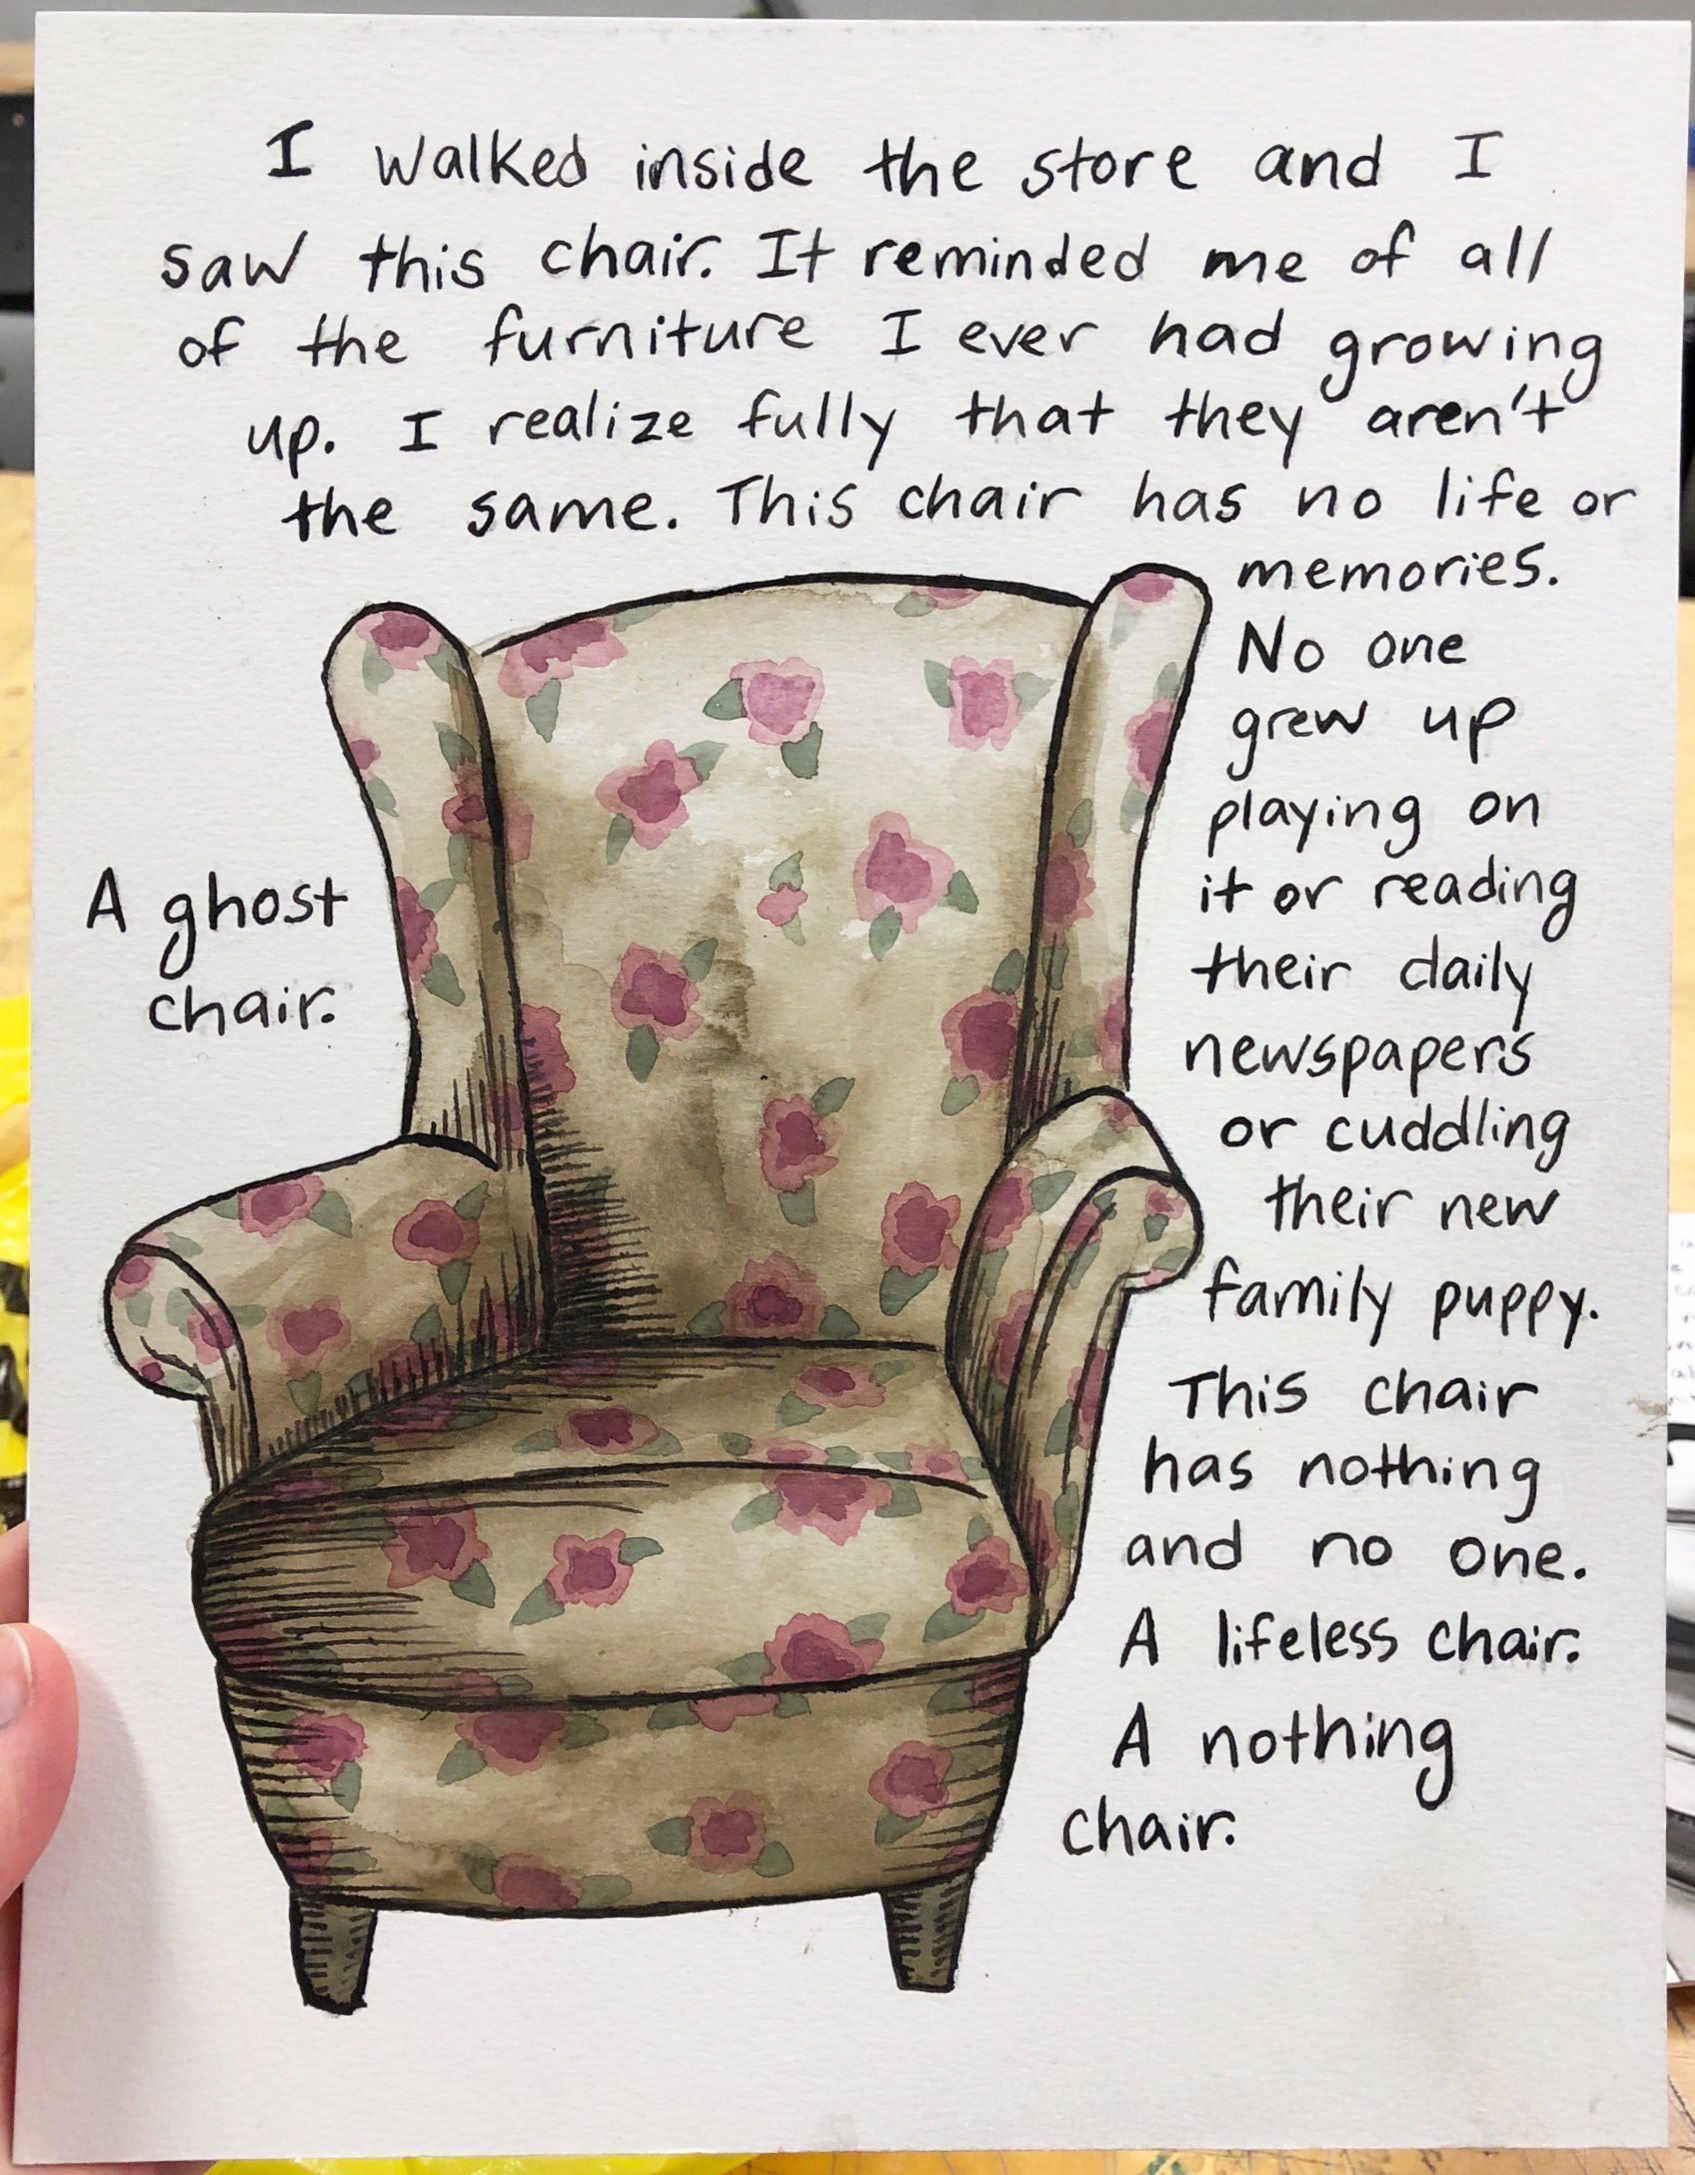 I walked inside the store and I
saw this chair. It reminded me of all
of the furniture I ever had growing
up. I realize fully that they aren't
the same. This chair has no life or
memories.
No one
grew up
playing on
it or reading
their daily
newspapers
or cuddling
their new
family puppy.
This chair
has nothing
and no one.
A lifeless chair.
A nothing
chair.
A ghost
chair.